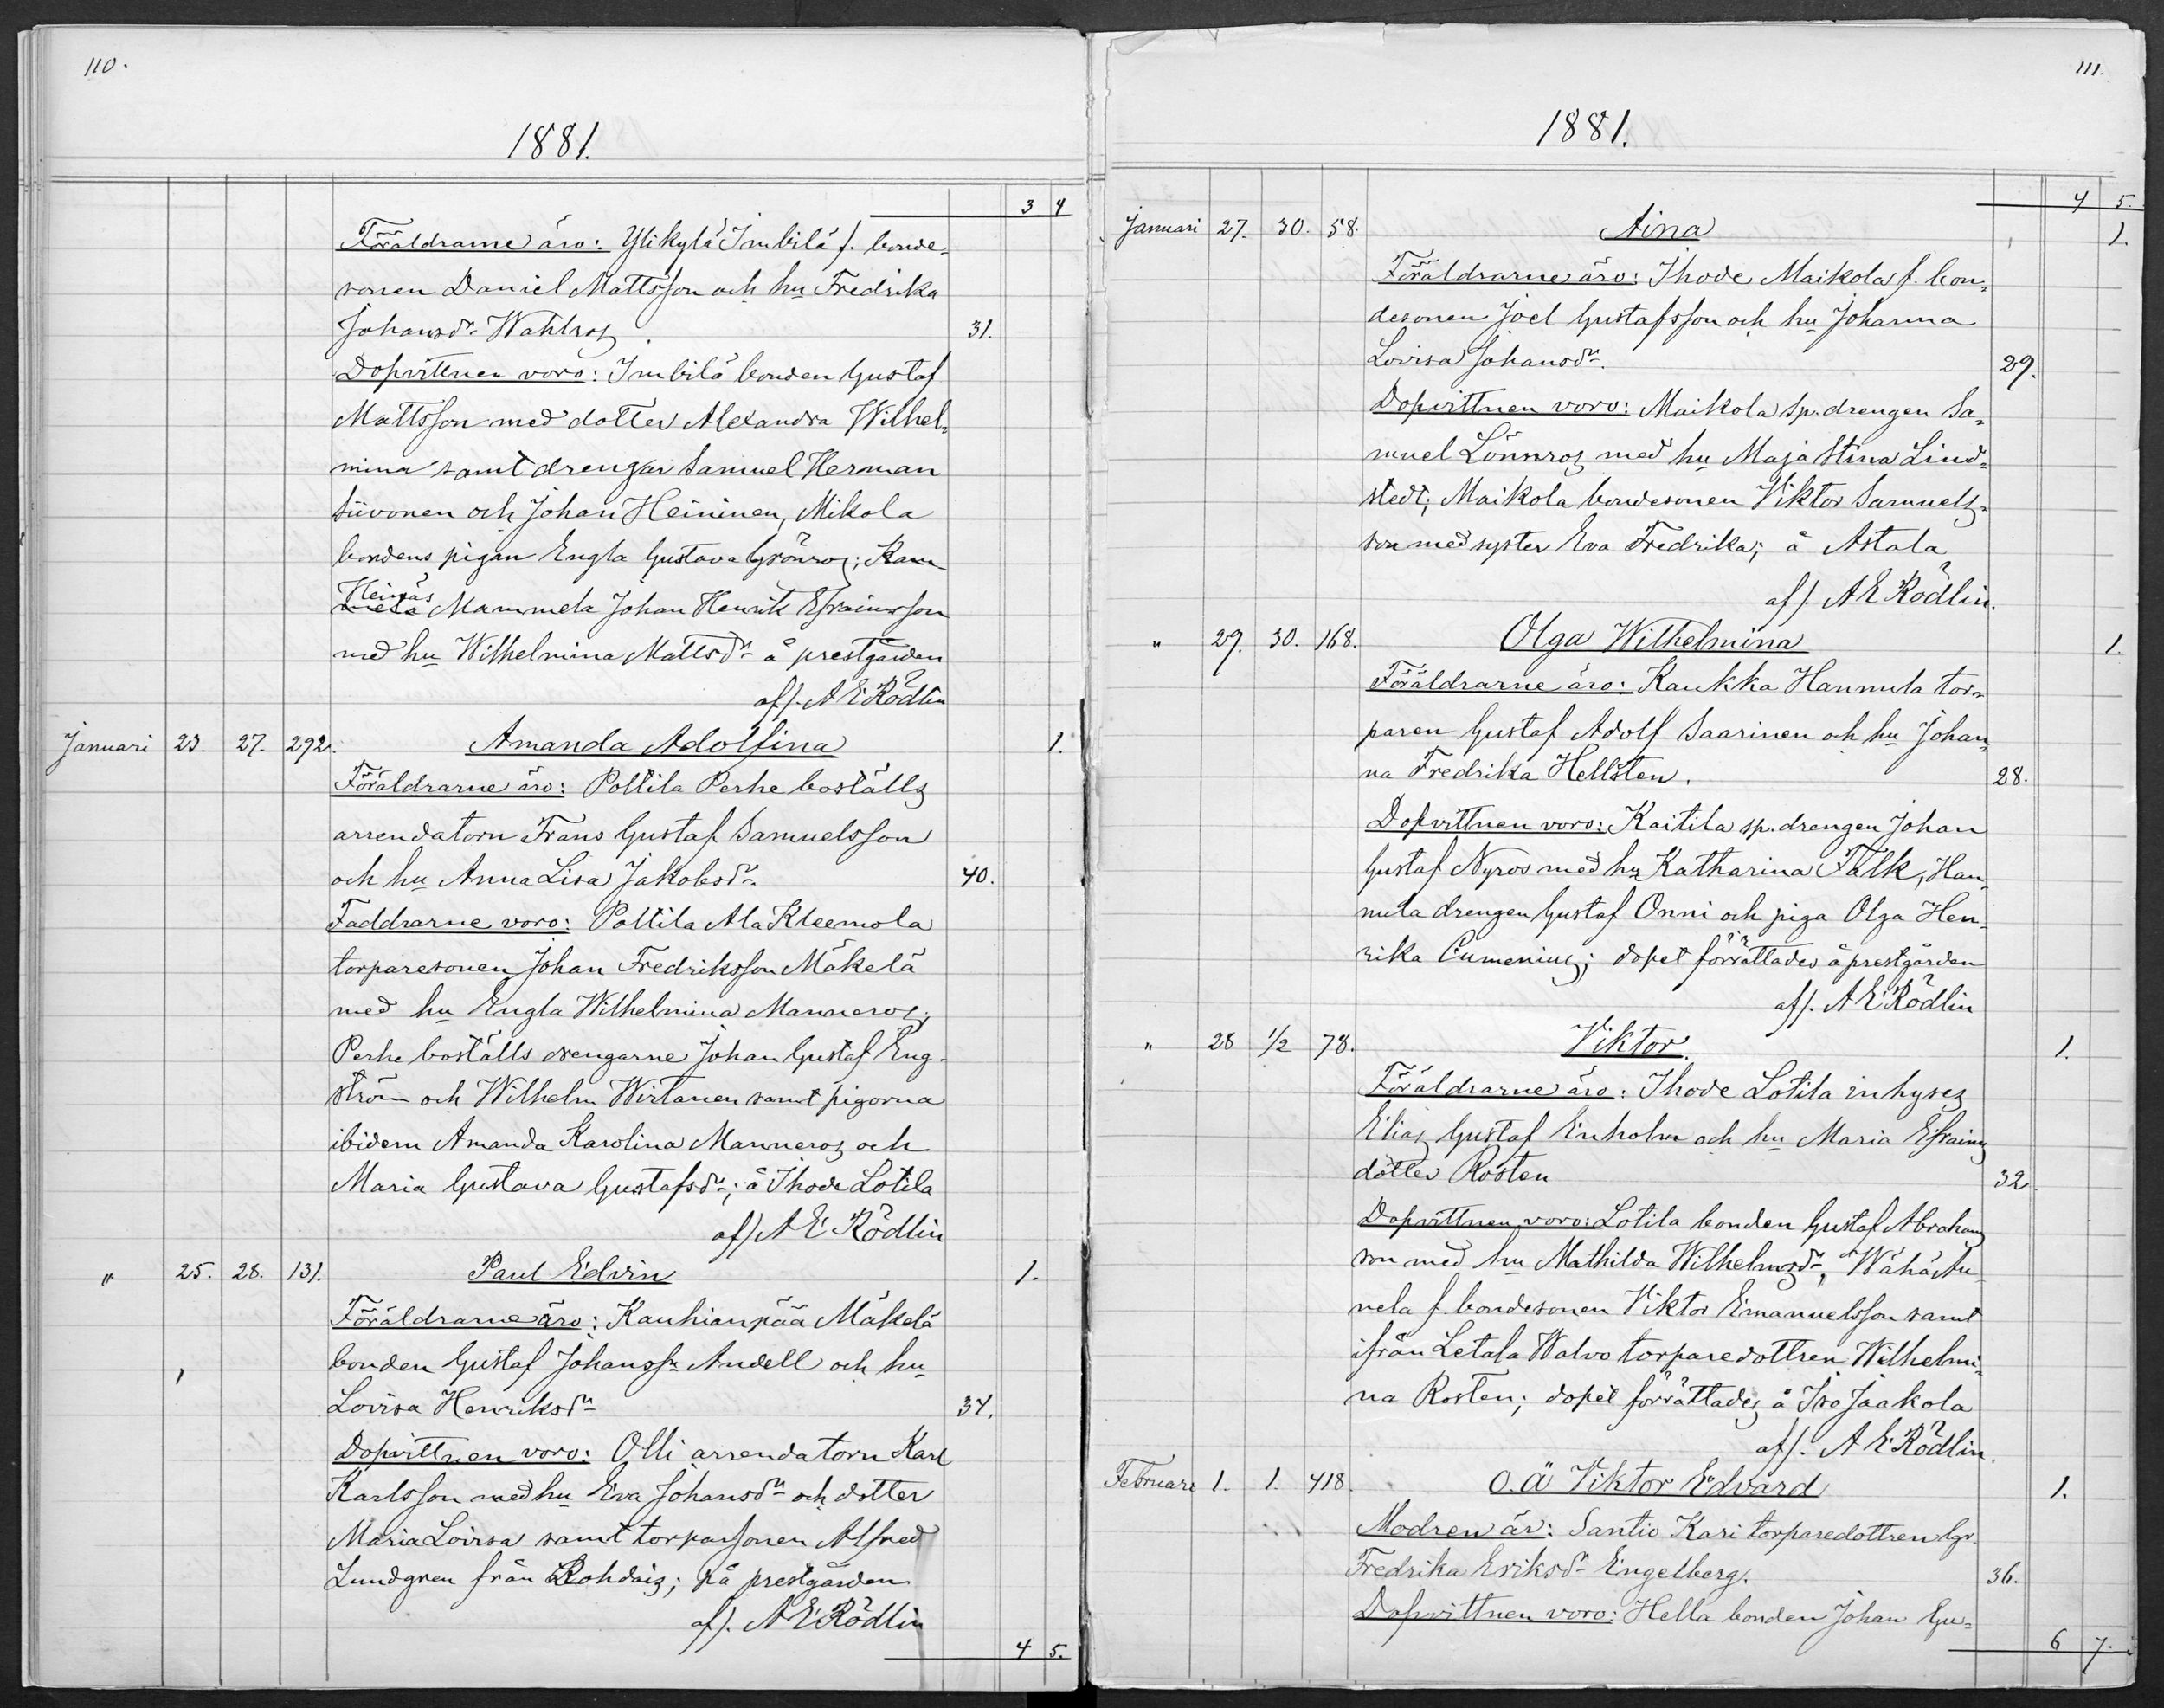 110.
1881.
3 4
Föräldrarne äro: Ylikylä Imbilä f. bonde=
sonen Daniel Mattsson och hu Fredrika
Johansdr Wahlros. 31.
Dopvittnen voro: Imbilä bonden Gustaf
Mattsson med dotter Alexandra Wilhel=
mina samt drengar Samuel Herman
Siivonen och Johan Heininen, Mikola
bondens pigan Engla Gustava Grönros;
Heinäs Mammela Johan Henrik Efraimsson
med hu Wilhelmina Mattsdr å prestgården
af/. A E Rödlin
Januari 23. 27. 292. Amanda Adolfina 1.
Föräldrarne äro: Pottila Perhe boställs
arrendatorn Frans Gustaf Samuelsson
och hu Anna Lisa Jakobsdr. 40.
Faddrarne voro: Pottila Ala Kleemola
torparesonen Johan Fredriksson Mäkelä
med hu Engla Wilhelmina Manneros;
Perhe boställs drengarne Johan Gustaf Eng-
ström och Wilhelm Wirtanen samt pigorna
ibidem Amanda Karolina Manneros och
Maria Gustava Gustafsdr; å Ihode Lotila
af/. A E Rödlin
" 25. 28. 131. Paul Edvin 1.
Föräldrarne äro: Kauhianpää Mäkelä
bonden Gustaf Johanssn Andell och hu
Lovisa Henriksdr 34.
Dopvittnen voro: Olli arrendatorn Karl
Karlsson med hu Eva Johansdr och dotter
Maria Lovisa samt torparsonen Alfred
Lundgren från Rohdais; på prestgården
af/. A E Rödlin
4 5.
111.
1881.
4 5.
Januari 27. 30. 58. Aina 1.
Föräldrarne äro: Ihode Maikola f. bon=
desonen Joel Gustafsson och hu Johanna
Lovisa Johansdr. 29.
Dopvittnen voro: Maikola sp. drengen Sa=
muel Lönnros med hu Maja Stina Lind=
stedt; Maikola bondesonen Viktor Samuels=
son med syster Eva Fredrika; å Astala
af/. A E Rödlin.
" 29. 30. 168. Olga Wilhelmina 1.
Föräldrarne äro: Kaukka Hannula tor=
paren Gustaf Adolf Saarinen och hu Johan=
na Fredrika Hellsten. 28.
Dopvittnen voro: Kaitila sp. drengen Johan
Gustaf Nyros med hu Katharina Falk, Han=
nula drengen Gustaf Onni och piga Olga Hen=
rika Cumenius; dopet förrättades å prestgården
af/. A E Rödlin
" 28 1/2 78. Viktor. 1.
Föräldrarne äro: Ihode Lotila inhyses
Elias Gustaf Enholm och hu Maria Efraims
dotter Rosten 32.
Dopvittnen voro: Lotila bonden Gustaf Abrahams
son med hu Mathilda Wilhelmsdr,
nela f. bondesonen Viktor Emanuelsson samt
ifrån Letala Walvo torparedottren Wilhelmi=
na Rosten; dopet förrättades å Iso Jaakola
af/. A E Rödlin.
Februari 1. 1. 418. O. Ä Viktor Edvard 1.
Modren är: Santio Kari torparedottren lgr.
Fredrika Eriksdr Engelberg. 36.
Dopvittnen voro: Hella bonden Johan Gu=
6 7.